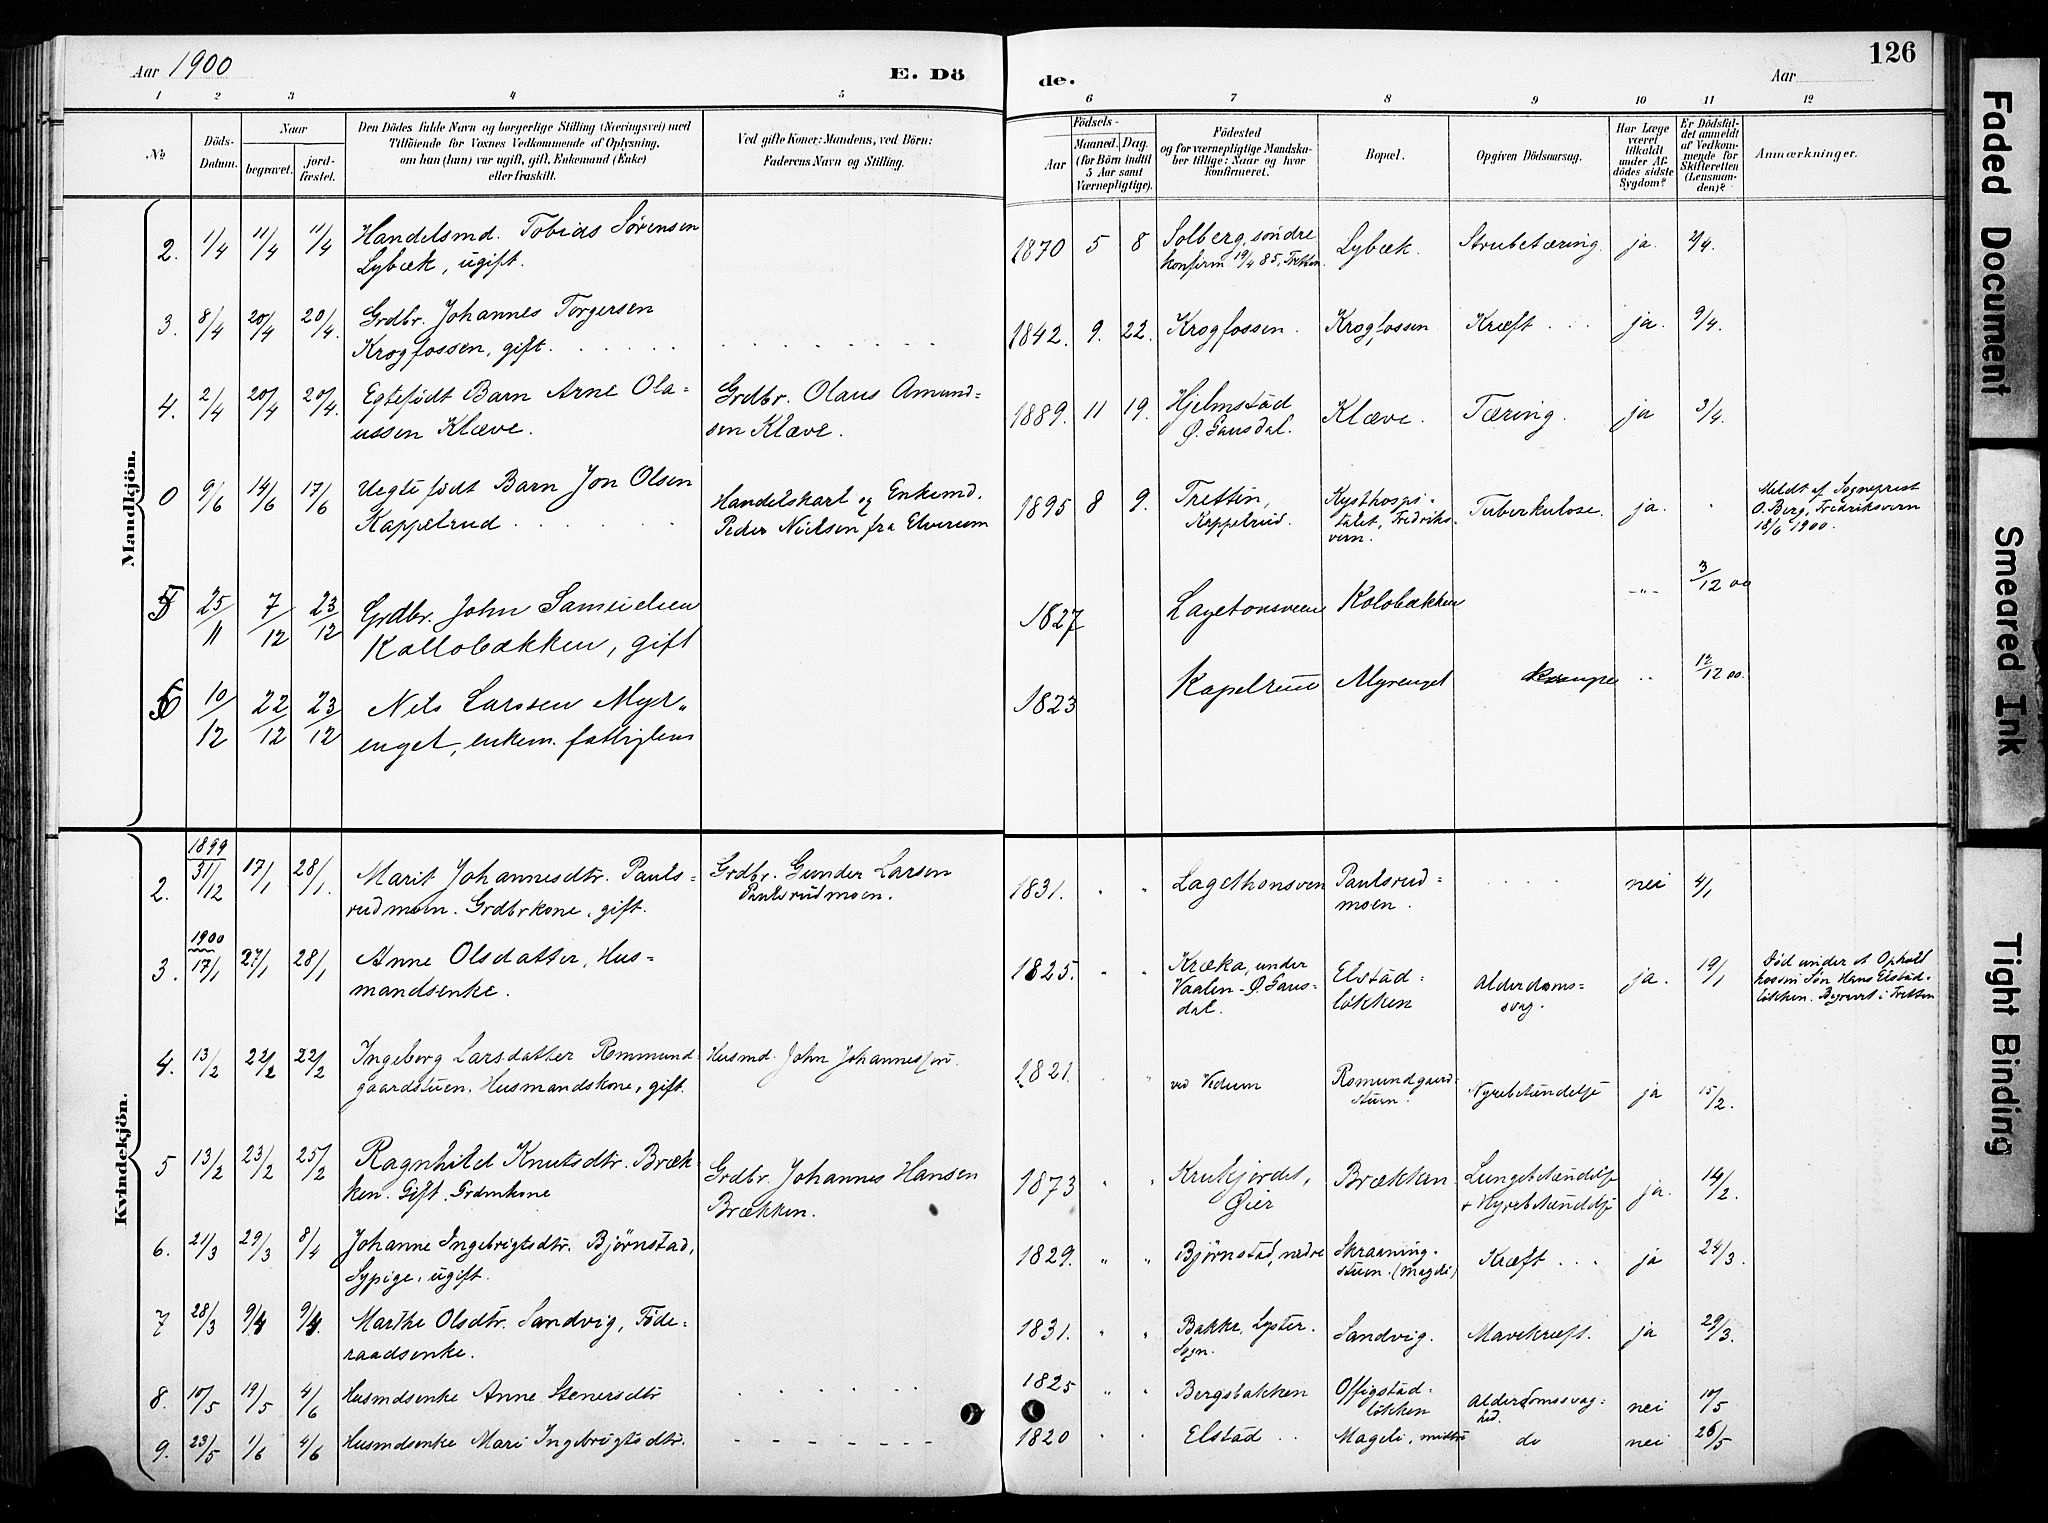 Aar 1900
E. Dö
de.
Aar
126
1 2 3 4 5 6 7 8 9 10 11 12
No.
Döds-
Datum.
Naar
begravet.
jord-
fæstet.
Den Dödes fulde Navn og borgerlige Stilling (Næringsvei) med
Tilföiende for Voxnes Vedkommende af Oplysning,
om han (hun) var ugift, gift, Enkemand (Enke)
eller fraskilt.
Ved gifte Koner: Mandens, ved Börn:
Faderens Navn og Stilling.
Födsels-
Aar
Maaned. Dag.
(for Börn indtil
5 Aar samt
Værnepligtige).
Födested
og for værnepligtige Mandska-
ber tillige: Naar og hvor
konfirmeret.
Bopæl.
Opgiven Dödsaarsag.
Har Læge
været
tilkaldt
under Af-
dödes sidste
Sygdom?
Er Dödsfal-
det anmeldt
af Vedkom-
mende for
Skifteretten
(Lensman-
den)?
Anmærkninger.
Mandkjön.
2. 1/4 11/4 11/4 Handelsmd. Tobias Sørensen
Lybæk, ugift.
1870 5 8 Solberg, søndre
konfirm. 19/4 85, Tretten.
Lybæk. Strubetæring. ja. 2/4.
3. 8/4 20/4 20/4. Grdbr. Johannes Torgersen
Krogfossen, gift.
1842. 9. 22. Krogfossen. Krogfossen. Kræft ja. 9/4.
4. 2/4 20/4 20/4. Egtefødt Barn Arne Ola-
ussen Klæve.
Grdbr. Olaus Amund-
sen Klæve.
1889. 11 19. Hjelmstad
Ø. Gausdal.
Klæve. Tæring. ja 3/4.
0 9/6 14/6 17/6 Uegtefødt Barn Jon Olsen
Kappelrud
Handelskarl og Enkemd.
Peder Nielsen fra Elverum
1895 8 9. Tretten,
Kappelrud.
Kysthospi-
talet, Fredriks-
vern.
Tuberkulose. ja.
Meldt af Sogneprest
O. Berg, Fredriksvern
18/6 1900.
5 25/11 7/12 23/12 Grdbr. John Samuelsen
Kollobækken, gift
1827 Lagetonsveen Kolobækken -"- 3/12 00
6 10/12 22/12 23/12 Nils Larssen Myr-
enget, enkem. fattiglem
1823 Kapelrud Myrenget 12/12 00.
Kvindekjön.
2. 1899 31/12 17/1 28/1. Marit Johannesdtr. Pauls-
rudmoen. Grdbrkone, gift.
Grdbr. Gunder Larsen
Paulsrudmoen.
1831. " " Lagethonsven Paulsrud-
moen. nei 4/1
3. 1900 17/1 27/1 28/1 Anne Olsdatter, Hus-
mandsenke.
1825. " " Kræka, under
Vaalen - Ø. Gaus-
dal.
Elstad-
løkken
Alderdoms-
svag.
ja. 19/1
Død under et Ophold
hos sin Søn Hans Elstad-
løkken. Begravet i Tretten
4. 13/2 22/2 22/2 Ingeborg Larsdatter Rommund-
gaardstuen. Husmandskone, gift.
Husmd. John Johannessen.
1821. " ved Vedum Romundgaard-
stuen.
Nyrebetændelse ja 15/2.
5 13/2 23/2 25/2 Ragnhild Knutsdtr. Bræk-
ken. Gift. Grdmkone
Grdbr. Johannes Hansen
Brækken.
1873 " " Krukjordet,
Øier
Brækken Lungebetændelse
+ Nyrebetændelse ja. 14/2.
6. 21/3 29/3 8/4 Johanne Ingebrigtsdtr. Bjørnstad,
Sypige, ugift.
1829. " " Bjørnstad, nedre Skraaning-
stuen. (Mageli)
Kræft ja 24/3.
7 28/3 9/4 9/4. Marthe Olsdtr. Sandvig, Føde-
raadsenke.
1831. " " Bakke, Lyster
Sogn.
Sandvig. Mavekræft. ja 29/3.
8. 10/5 19/5 4/6 Husmdsenke Anne Stenersdtr
1825 " " Bergsbakken Offigstad-
løkken
Alderdomssvag-
hed. nei 10/5
9. 23/5 1/6 4/6 Husmdsenke Mari Ingebrigtsdtr.
1820 " " Elstad Mageli, midtre do nei 26/5
Faded Document
Smeared Ink
Tight Binding